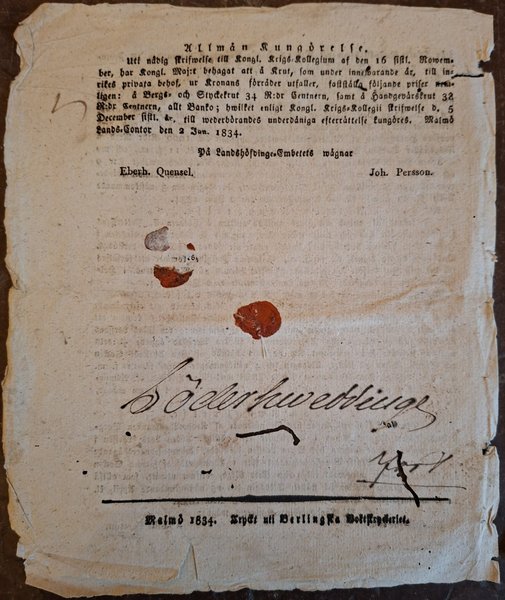 Allmän Kungörelse.
Utti nådig skrifwelse till Kongl. Krigs-Kollegium af den 16 sistl. Novem-
ber, har Kongl. Maj:t behagat att å Krut, som under innewarande år, till in-
rikes privata behof, ur Kronans förråder utfaller, fastställa följande priser nem-
ligen: å Bergs- och Styckekrut 34 R:dr Centnern, samt å Handgevärskrut 32
R:dr Centnern, allt Banko; hwilket enligt Kongl. Krigs-Kollegii skrifwelse d. 5
December sistl. år, till wederbörandes underdåniga efterrättelse kungöres. Malmö
Lands-Contor den 2 Jan. 1834.
På Landshöfdinge-Embetets wägnar
Eberh. Quensel. Joh. Persson.
Söderhweddinge
Malmö 1834. Tryckt uti Berlingska Boktryckeriet.